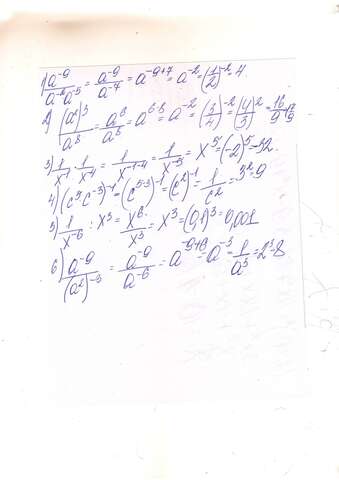 1) a^-9 / a^-2 a^-5 = a^-9 / a^-7 = a^-9+7 = a^-2 = (1/2)^-2 = 4.
2) (a^2)^3 / a^8 = a^6 / a^8 = a^6-8 = a^-2 = (3/4)^-2 = (4/3)^2 = 16/9 =
3) 1/x^-1 · 1/x^-4 = 1/x^-1-4 = 1/x^-5 = x^5 = (-2)^5 = -32.
4) (c^5 c^-3)^-1 = (c^5-3)^-1 = (c^2)^-1 = 1/c^2 = 3^2 = 9
5) 1/x^-6 : x^3 = x^6/x^3 = x^3 = (0,1)^3 = 0,001
6) a^-9 / (a^2)^-3 = a^-9 / a^-6 = a^-9+6 = a^-3 = 1/a^3 = 2^3 = 8